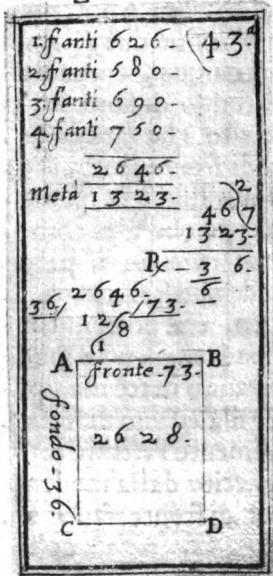 1. fanti 626-
43.a
2. fanti 580-
3. fanti 690-
4. fanti 750-
2646-
Metà 1323-
2
46 7
1323-
R — 3 6.
6
2646-
36/ /73-
12 8
1
A B
fronte-73-
2628-
fondo-36.
C D